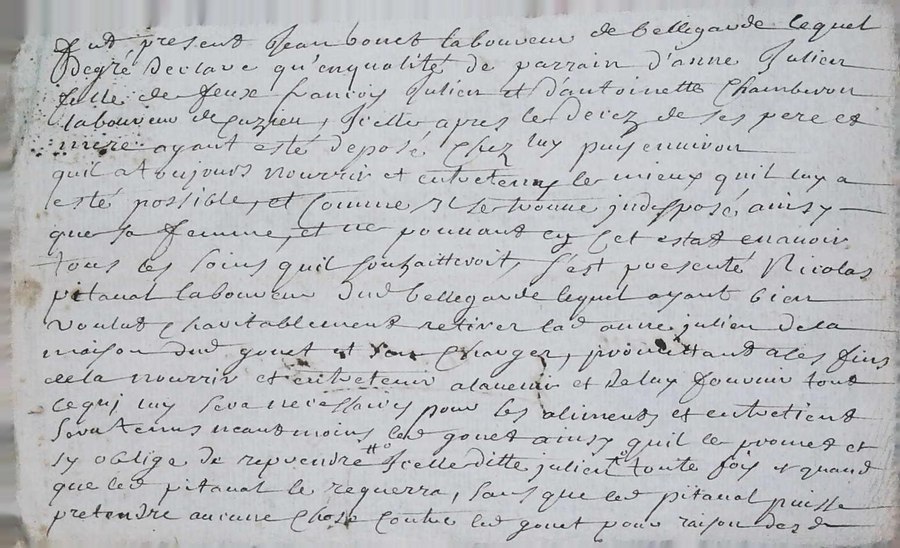 fut present Jean gonet laboureur de bellegarde lequel
degré declare qu'enqualité de parrain d'anne Julien
fille de feux francois Julien et d'antoinette Chamberon
laboureur de Cuzieu, Icelle apres le decez de ses pere et
mere ayant esté deposé chez luy puis environ
quil a toujours nourrir et entretenu le mieux quil luy a
esté possible, et Comme il se trouve indisposé ainsy
que sa femme, et ne pouvant en Cet estat en avoir
tous les soins quil souhaitteroit, s'est presenté Nicolas
pitaval laboureur dud bellegarde lequel ayant bien
voulut charitablement retirer lad anne julien dela
maison dud gonet et sen charger, promettant a les fins
dela nourrir et entretenir alavenir et deluy fournir tout
cequi luy sera necessaire pour les aliments et entretient
sera tenus neautmoins led gonet ainsy quil le promet et
sy oblige de reprendre Icelleditte julien toute fois et quand
que led pitaval le requerra, sans que led pitaval puisse
pretendre aucune chose contre led gonet pour raison des d